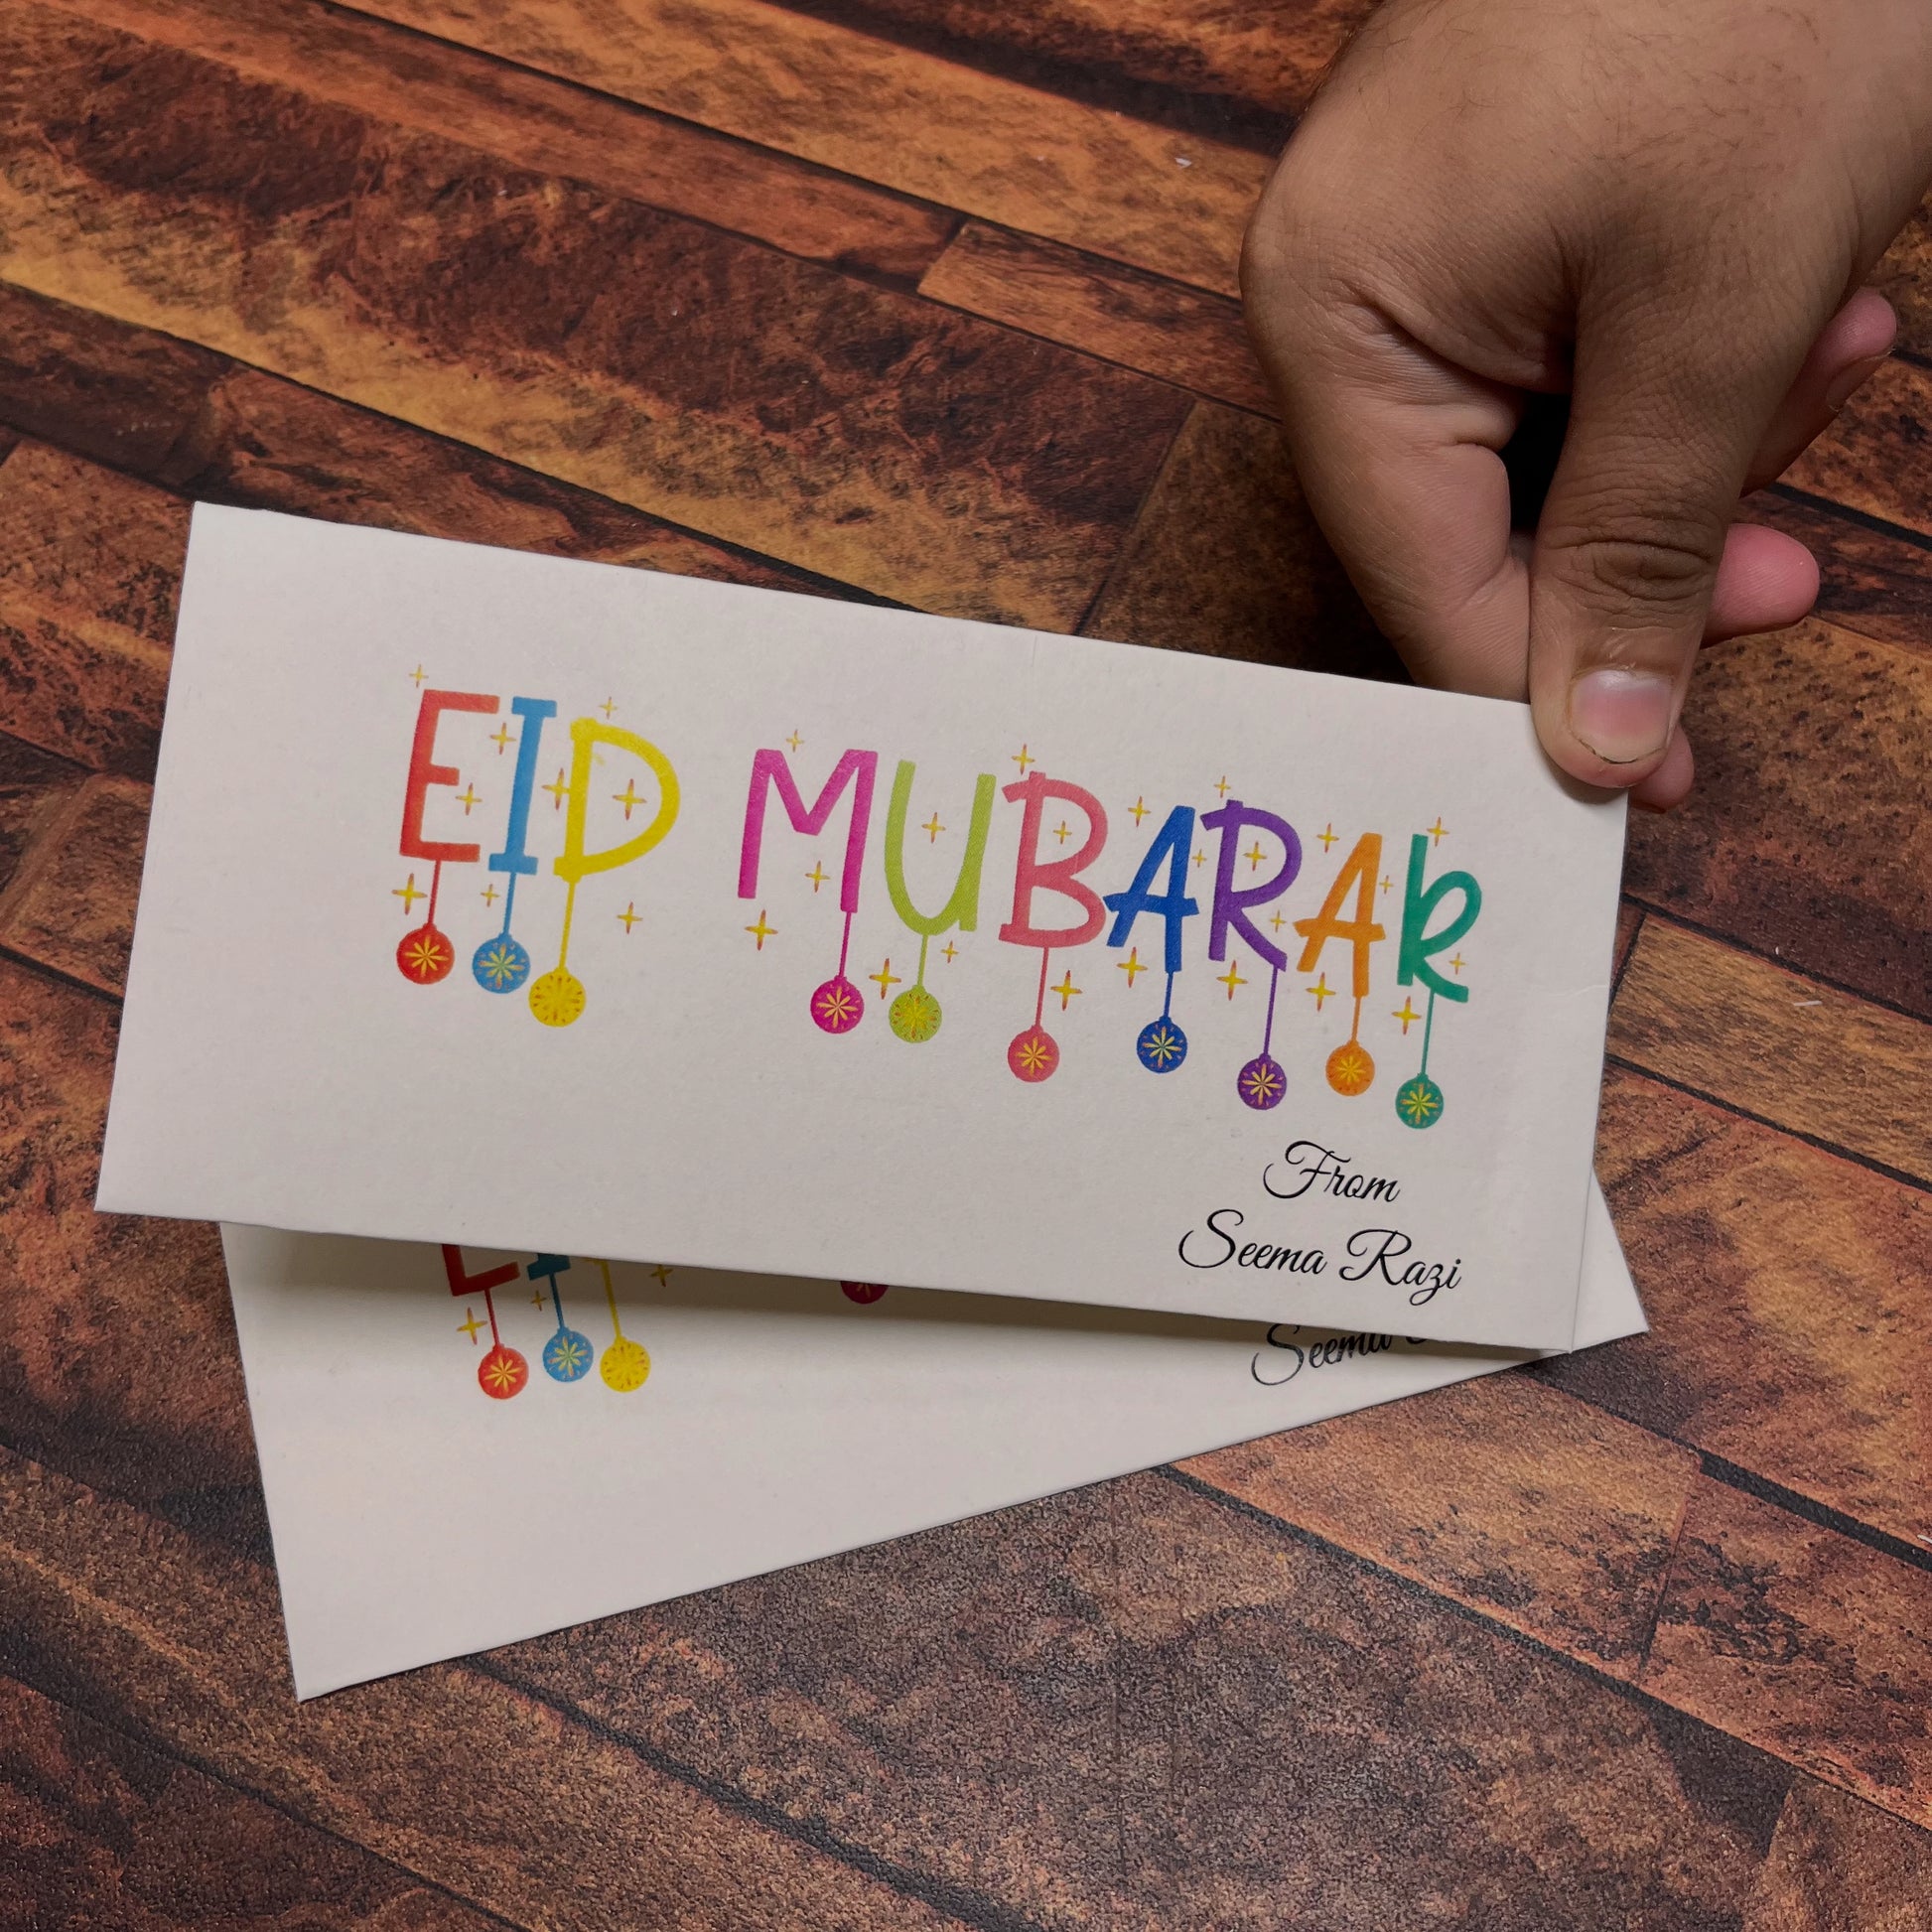 EID MUBARAK
From
Seema Razi
EID
Seema